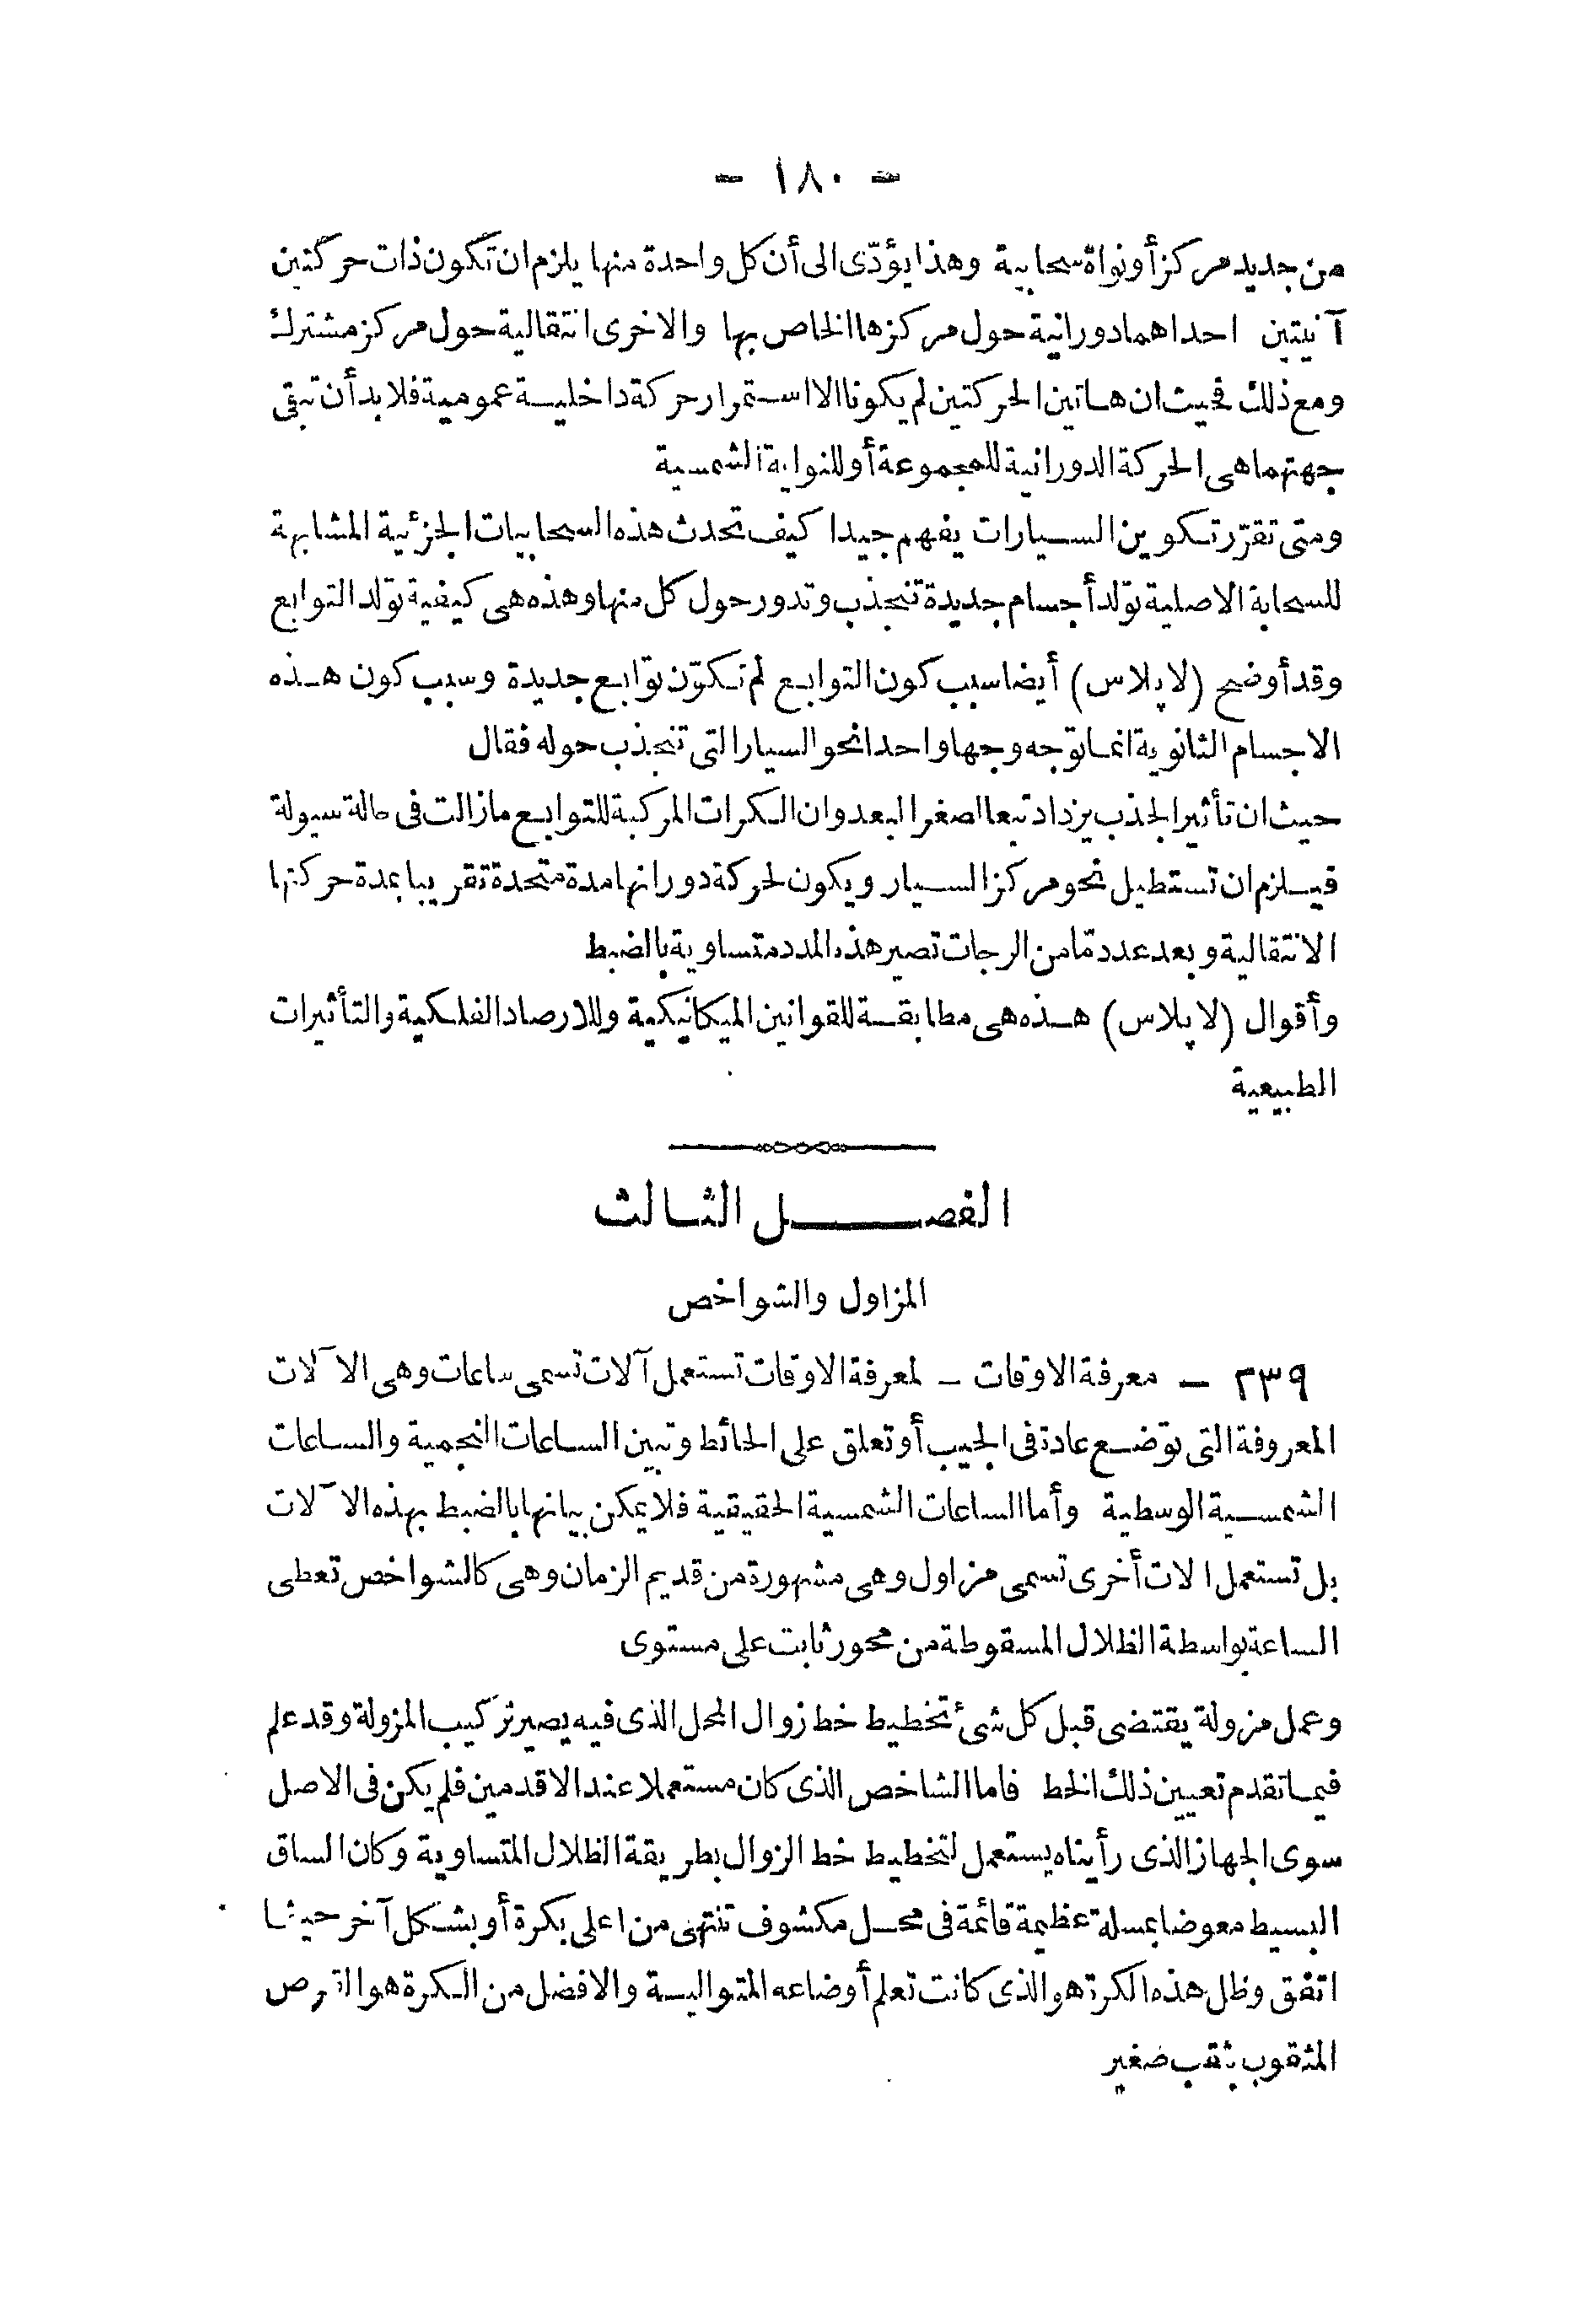 - ١٨٠ -
من جديد مركز أو نواة سحابية وهذا يؤدّى الى أن كل واحدة منها يلزم ان تكون ذات حركتين
آنيتين احداهما دورانية حول مركزها الخاص بها والاخرى انتقالية حول مركز مشترك
ومع ذلك فحيث ان هاتين الحركتين لم يكونا الا استمرار حركة داخلية عمومية فلا بد أن تبقى
جهتهما هى الحركة الدورانية للمجموعة أو للنواية الشمسية
ومتى تقرّر تكوين السيارات يفهم جيدا كيف تحدث هذه السحابيات الجزئية المشابهة
للسحابة الاصلية تولد أجسام جديدة تنجذب وتدور حول كل منها وهذه هى كيفية تولد التوابع
وقد أوضح (لاپلاس) أيضا سبب كون التوابع لم تكوّن توابع جديدة وسبب كون هذه
الاجسام الثانوية انما توجه وجها واحدا نحو السيار التى تنجذب حوله فقال
حيث ان تأثير الجذب يزداد تبعا لصغر البعد وان الكرات المركبة للتوابع مازالت فى حالة سيولة
فيلزم ان تستطيل نحو مركز السيار ويكون لحركة دورانها مدة متحدة تقريبا بمدة حركتها
الانتقالية وبعد عدد مّا من الرجات تصير هذه المدد متساوية بالضبط
وأقوال (لاپلاس) هذه هى مطابقة للقوانين الميكانيكية وللارصاد الفلكية والتأثيرات
الطبيعية
الفصل الثالث
المزاول والشواخص
٣٣٩ - معرفة الاوقات - لمعرفة الاوقات تستعمل آلات تسمى ساعات وهى الآلات
المعروفة التى توضع عادة فى الجيب أو تعلق على الحائط وتبين الساعات النجمية والساعات
الشمسية الوسطية وأما الساعات الشمسية الحقيقية فلا يمكن بيانها بالضبط بهذه الآلات
بل تستعمل الات أخرى تسمى مزاول وهى مشهورة من قديم الزمان وهى كالشواخص تعطى
الساعة بواسطة الظلال المسقوطة من محور ثابت على مستوى
وعمل مزولة يقتضى قبل كل شئ تخطيط خط زوال المحل الذى فيه يصير تركيب المزولة وقد علم
فيما تقدم تعيين ذلك الخط فاما الشاخص الذى كان مستعملا عند الاقدمين فلم يكن فى الاصل
سوى الجهاز الذى رأيناه يستعمل لتخطيط خط الزوال بطريقة الظلال المتساوية وكان الساق
البسيط معوضا بمسلة عظيمة قائمة فى محل مكشوف تنتهى من اعلى بكرة أو بشكل آخر حيثما
اتفق وظل هذه الكرة هو الذى كانت تعلم أوضاعه المتوالية والافضل من الكرة هو القرص
المثقوب بثقب صغير